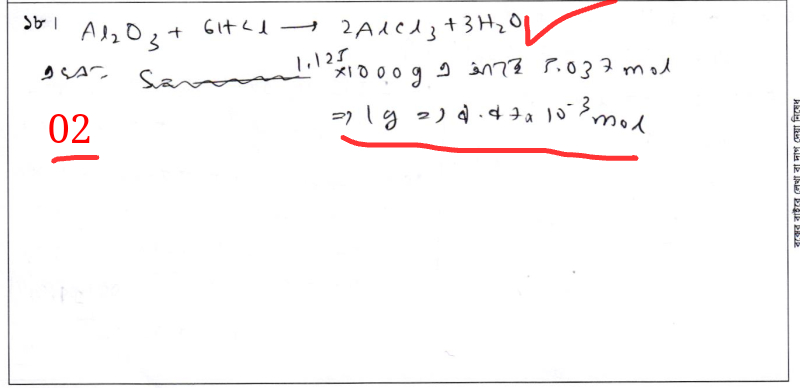 ১৮। Al₂O₃ + 6HCl → 2AlCl₃ + 3H₂O
1.125
×1000g এ আছে 5.037 mol
⇒ 1g ⇒ 4.47× 10⁻³ mol
02
বক্সের বাইরে লেখা বা দাগ দেয়া নিষেধ